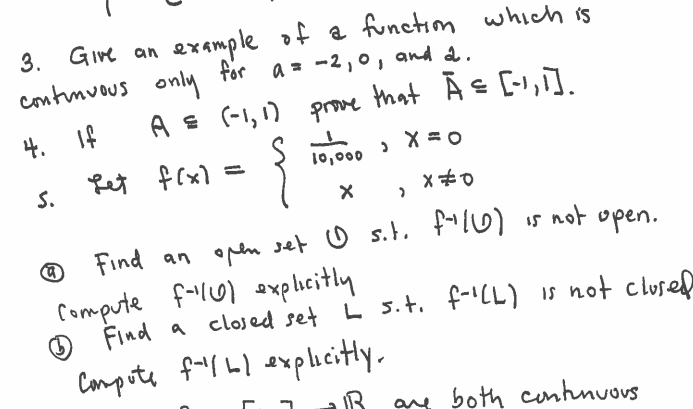 3. Give an example of a function which is
continuous only for a = -2, 0, and 2.
4. If A ⊆ (-1,1) prove that Ā ⊆ [-1,1].
5. Let f(x) = { 1/10,000 , x = 0
x , x ≠ 0
ⓐ Find an open set U s.t. f⁻¹(U) is not open.
Compute f⁻¹(U) explicitly
ⓑ Find a closed set L s.t. f⁻¹(L) is not closed
Compute f⁻¹(L) explicitly.
→ ℝ are both continuous